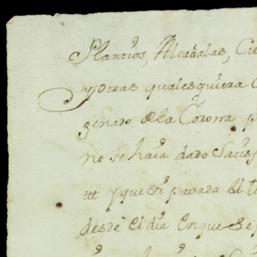 Plantios, Alcabalas, Cie
y otras qualesquiera
genado de la Corona p
no se haia dado Satis
pasada el t
desde el dia en que Se p